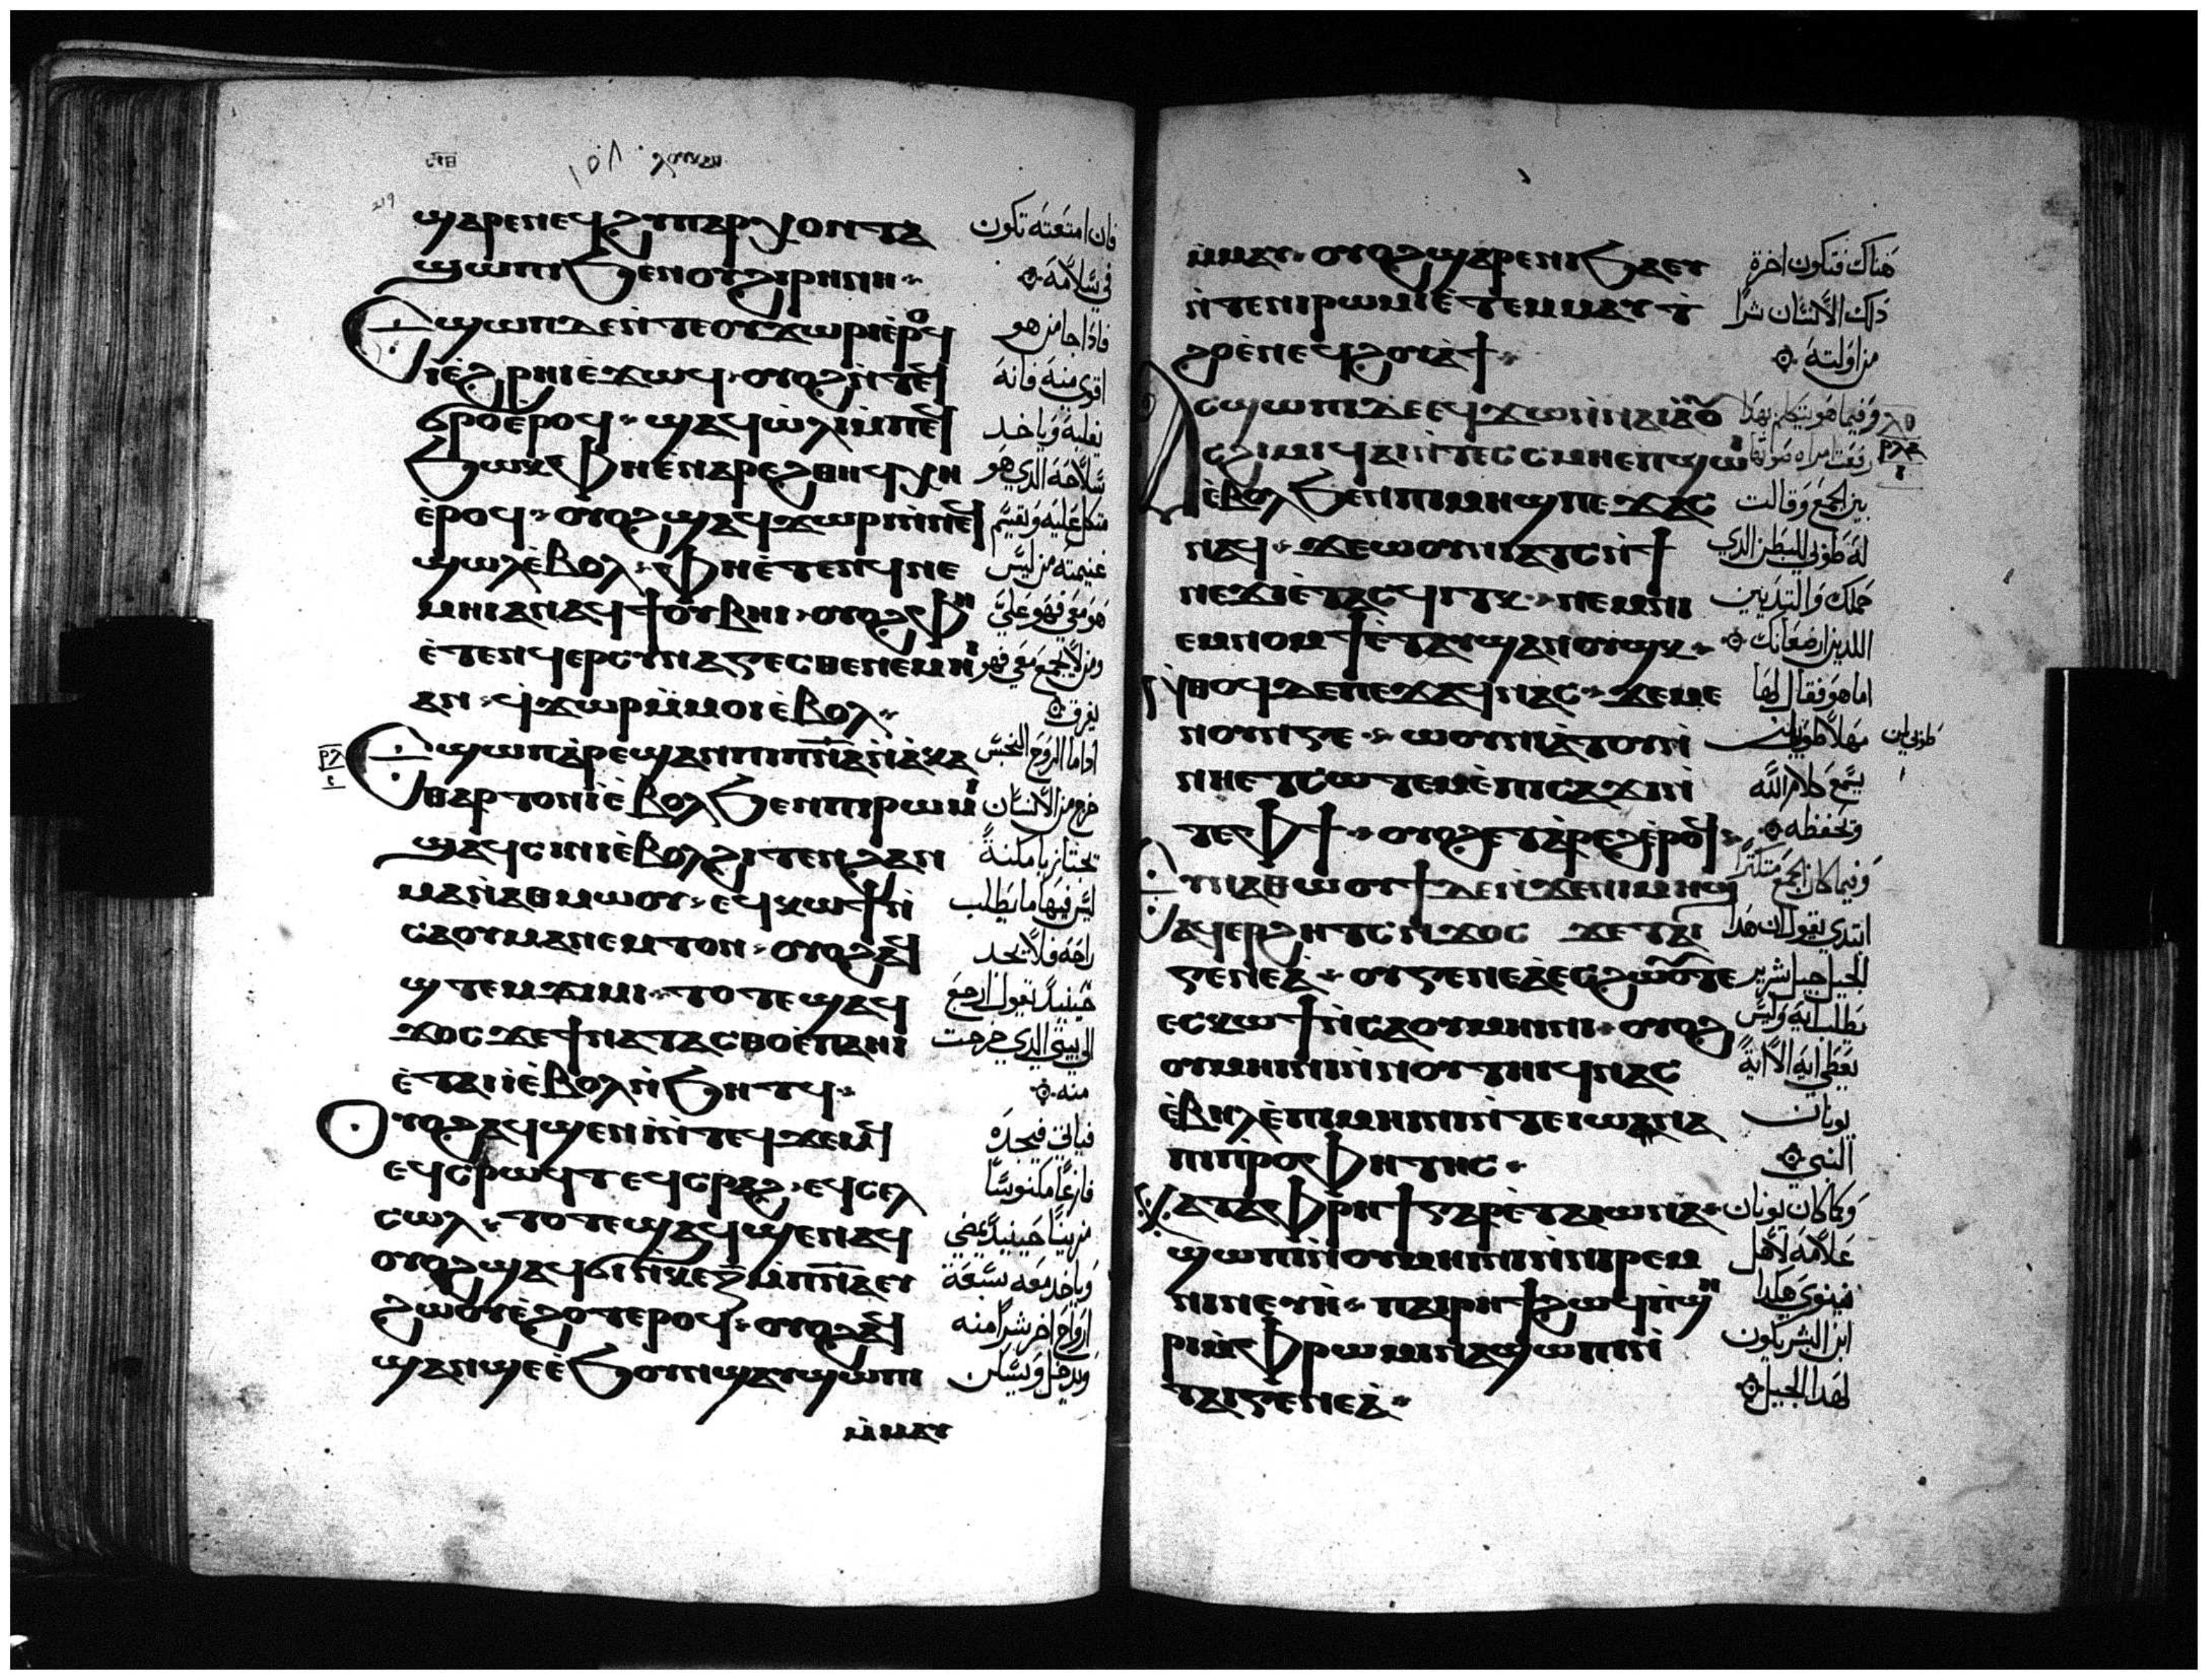 ϣⲁⲣⲉⲛⲉϥϩⲩⲡⲁⲣⲭⲟⲛⲧⲁ
ϣⲱⲡⲓϧⲉⲛⲟⲩϩⲓⲣⲏⲛⲏ
ⲉϣⲱⲡⲇⲉⲛ̀ⲧⲉⲟⲩϫⲱⲣⲓⲉ̀ⲣⲟϥ
ⲓ̀ⲉ̀ϩⲣⲏⲓⲉ̀ϫⲱϥ ⲟⲩⲟϩⲛ̀ⲧⲉϥ
ϭⲣⲟⲉ̀ⲣⲟϥ ϣⲁϥⲱ̀ⲗⲓⲙ̀ⲡⲉϥ
ϧⲱⲕ ⲫⲏⲉ̀ⲛⲁⲣⲉϩⲑⲏϥⲭⲏ
ⲉ̀ⲣⲟϥ ⲟⲩⲟϩϣⲁϥϫⲱⲣⲛ̀ⲛⲉϥ
ϣⲱⲗⲉ̀ⲃⲟⲗ ⲫⲏⲉ̀ⲧⲉⲛϥⲛⲉ
ⲙⲏⲓⲁⲛⲁϥϯⲟⲩⲃⲏⲓ ⲟⲩⲟϩⲫⲏ
ⲉ̀ⲧⲉⲛϥⲉⲣⲥⲩⲛⲁⲅⲉⲥⲑⲉⲛⲉⲙⲏⲓ
ⲁⲛ ϥ̀ϫⲱⲣⲙ̀ⲙⲟⲓⲉ̀ⲃⲟⲗ
ⲉϣⲱⲡⲁ̀ⲣⲉϣⲁⲛⲡⲓⲡ̅ⲛ̅ⲁ̅ⲛ̀ⲁ̀ⲕⲁ
ⲑⲁⲣⲧⲟⲛⲓ̀ⲉ̀ⲃⲟⲗϧⲉⲛⲡⲓⲣⲱⲙⲓ
ϣⲁϥⲥⲓⲛⲓⲉ̀ⲃⲟⲗϩⲓⲧⲉⲛϩⲁⲛ
ⲙⲁⲛ̀ⲁⲑⲙⲱⲟⲩ ⲉϥⲕⲱϯⲛ̀
ⲥⲁⲟⲩⲙⲁⲛⲉⲙⲧⲟⲛ ⲟⲩⲟϩⲁϥ
ϣⲧⲉⲙϫⲓⲙⲓ ⲧⲟⲧⲉϣⲁϥ
ϫⲟⲥϫⲉϯⲛⲁⲧⲁⲥⲑⲟⲉ̀ⲡⲁⲏⲓ
ⲉ̀ⲧⲁⲓⲓ̀ⲉ̀ⲃⲟⲗⲛ̀ϧⲏⲧϥ
ⲟⲩⲟϩⲁϥϣⲉⲛⲓ̀ⲛ̀ⲧⲉϥϫⲉⲙϥ
ⲉϥⲥⲣⲱϥⲧⲉϥⲥⲣⲁϩ ⲉϥⲥⲉⲗ
ⲥⲱⲗ ⲧⲟⲧⲉϣⲁϥϣⲉⲛⲁϥ
ⲟⲩⲟϩϣⲁϥϭⲓⲛ̀ⲕⲉⲍ̅ⲙ̀ⲡ̅ⲛ̅ⲁ̅ⲉⲩ
ϩⲱⲟⲩⲉ̀ϩⲟⲧⲉⲣⲟϥ ⲟⲩⲟϩⲁϥ
ϣⲁⲛϣⲉⲉ̀ϧⲟⲩⲛϣⲁⲩϣⲱⲡⲓ
ⲙ̀ⲙⲁⲩ
فان امتعته تكون
في سلامه
فاذا جا من هو
اقوي منه فانه
يغلبه وياخد
سلاحه الدي هو
متكل عليه ويقسم
غنيمته من ليس
هو معي فهو علي
ومن لا يجمع معي فهو
يفرق
اداما الروح النجس
خرج من الانسان
تجتاز بامكنة
ليس فيها ما يطلب
راحه فلا تجد
حينيد تقول ارجع
الي بيتي الدي خرجت
منه
فياتي فيجده
فارغا مكنوسا
مزينا حينيد يمضي
وياخد معه سبعة
ارواح اخر شرا منه
ويدخل ويسكن
ⲙ̀ⲙⲁⲩ ⲟⲩⲟϩϣⲁⲣⲉⲛⲓϧⲁⲉⲩ
ⲛ̀ⲧⲉⲡⲓⲣⲱⲙⲓⲉ̀ⲧⲉⲙⲙⲁⲩⲧ̀
ϩⲟⲉ̀ⲛⲉϥϩⲟⲩⲁ̀ϯ
ⲁⲥϣⲱⲡⲓⲇⲉⲉϥϫⲱⲛ̀ⲛⲁⲓⲁⲟⲩ
ⲥϩⲓⲙⲓϥⲁⲓⲛ̀ⲧⲉⲥⲥⲙⲏⲉⲡϣⲱⲓ
ⲉ̀ⲃⲟⲗϧⲉⲛⲡⲓⲙⲏϣⲡⲉϫⲁⲥ
ⲛⲁϥ ϫⲉⲱⲟⲩⲛⲓⲁⲧⲥⲛ̀ϯ
ⲛⲉϫⲓⲉ̀ⲧⲁⲥϥⲓⲧⲕ ⲛⲉⲙⲛⲓ
ⲉⲙⲛⲟⲙϯⲉ̀ⲧⲁⲩϣⲁⲛⲟⲩϣⲕ
ⲛ̀ⲑⲟϥⲇⲉⲡⲉϫⲁϥⲛⲁⲥ ϫⲉⲙⲉ
ⲛⲟⲩⲛⲅⲉ ⲱⲟⲩⲛⲓⲁ̀ⲧⲟⲩⲛ̀
ⲛⲏⲉⲧⲥⲱⲧⲉⲙⲉ̀ⲡⲓⲥⲁϫⲓⲛ̀
ⲧⲉⲫϯ ⲟⲩⲟϩⲉⲧⲁ̀ⲣⲉϩⲉ̀ⲣⲟϥ
ⲉⲩⲛⲁⲑⲱⲟⲩϯⲇⲉⲛ̀ϫⲉⲛⲓⲙⲏϣ
ⲁϥⲉⲣϩⲏⲧⲥⲛ̀ϫⲟⲥ ϫⲉⲧⲁⲓ
ⲅⲉⲛⲉⲁ̀ ⲟⲩⲅⲉⲛⲉⲁ̀ⲉⲥϩⲱⲟⲩⲧⲉ
ⲉⲥⲕⲱϯⲛ̀ⲥⲁⲟⲩⲙⲏⲓⲛⲓ ⲟⲩⲟϩ
ⲟⲩⲙⲏⲓⲛⲓⲛ̀ⲛⲟⲩⲧⲏⲓϥⲛⲁⲥ
ⲉ̀ⲃⲏⲗⲉ̀ⲡⲓⲙⲏⲓⲛⲓⲛ̀ⲧⲉⲓⲱⲁⲛⲁ
ⲡⲓⲡⲣⲟⲫⲏⲧⲏⲥ
ⲕⲁⲧⲁⲫⲣⲏϯⲅⲁⲣⲉ̀ⲧⲁⲓⲱⲛⲁ
ϣⲱⲡⲓⲛ̀ⲟⲩⲙⲏⲓⲛⲓⲛ̀ⲛⲓⲣⲉⲙ
ⲛⲓⲛⲉⲩⲏ̀ ⲡⲁⲓⲣⲏϯϩⲱϥⲡ̀ϣⲏ
ⲣⲓⲙ̀ⲫⲣⲱⲙⲓⲛⲁϣⲱⲡⲓⲛ̀
ⲧⲁⲓⲅⲉⲛⲉⲁ̀
هناك فتكون اخرة
دلك الانسان شرا
من اولته
وفيما هو يتكلم بهدا
رفعت امراه صوتها
بين الجمع وقالت
له طوبي للبطن الدي
حملك والتديين
اللدين ارضعانك
اما هو فقال لها
مهلا طوبي لمن
يسمع كلام الله
وتحفظه
وفيما كان الجمع متكتر
ابتدي يقول ان هدا
الجيل جيل شرير
يطلب ايه وليس
يعطي ايه الا اية
يونان
النبي
وكما كان يونان
علامه لاهل
نينوي هكدا
ابن البشر يكون
لهدا الجيل